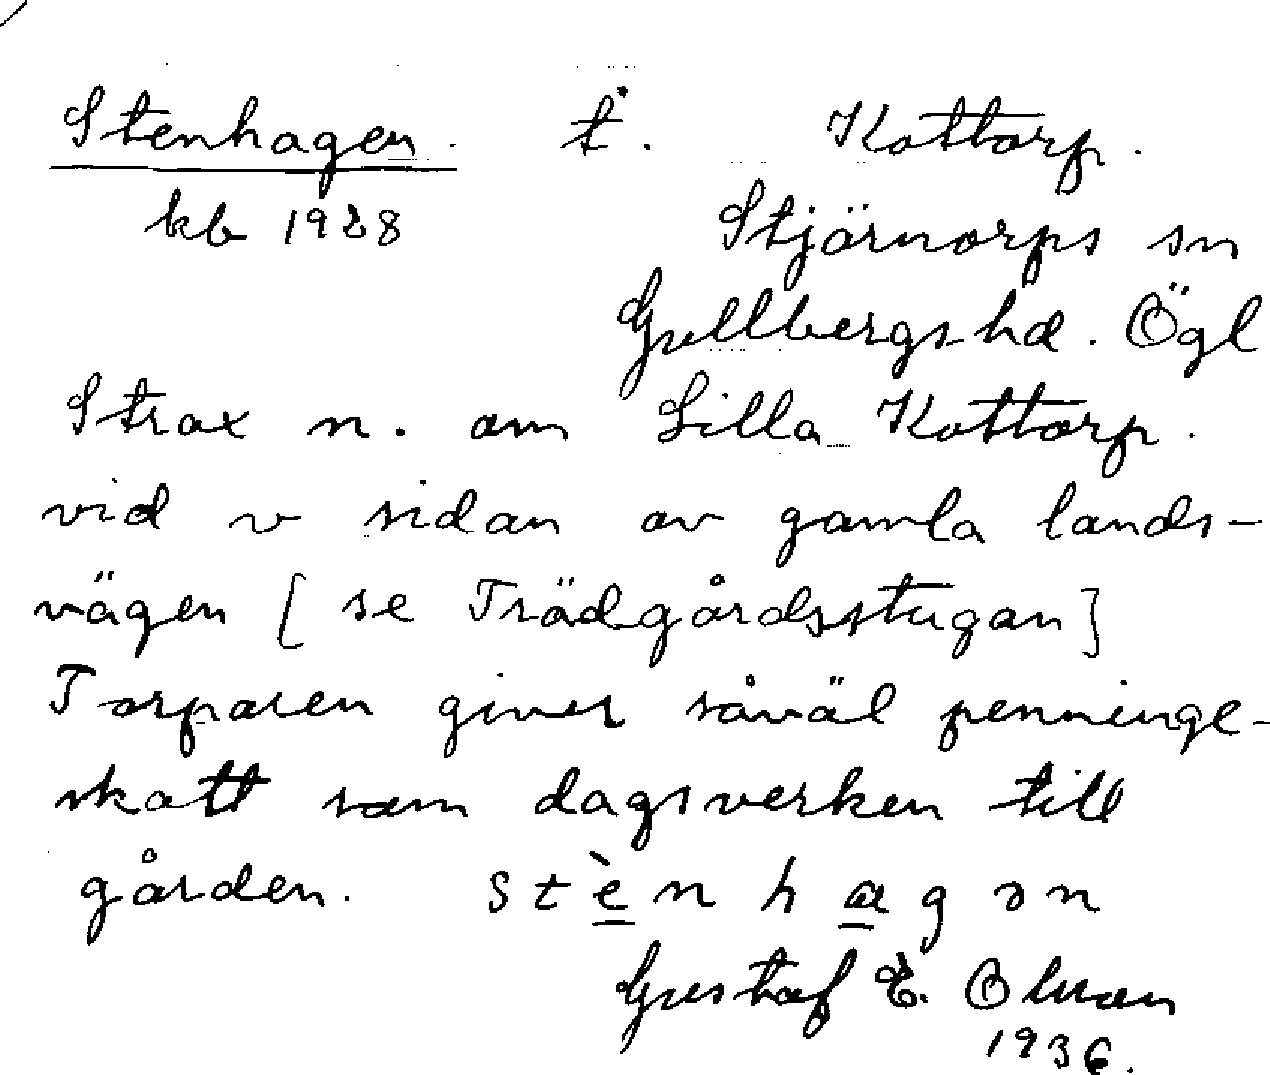 Stenhagen. t. Kottorp.
kb 1928 Stjärnorps sn
Gullbergs hd. Ögl
Strax n. om Lilla Kottorp.
vid v sidan av gamla lands-
vägen [se Trädgårdsstugan]
Torparen giver såväl penninge-
skatt som dagsverken till
gården. stὲnhagən
Gustaf E. Olson
1936.